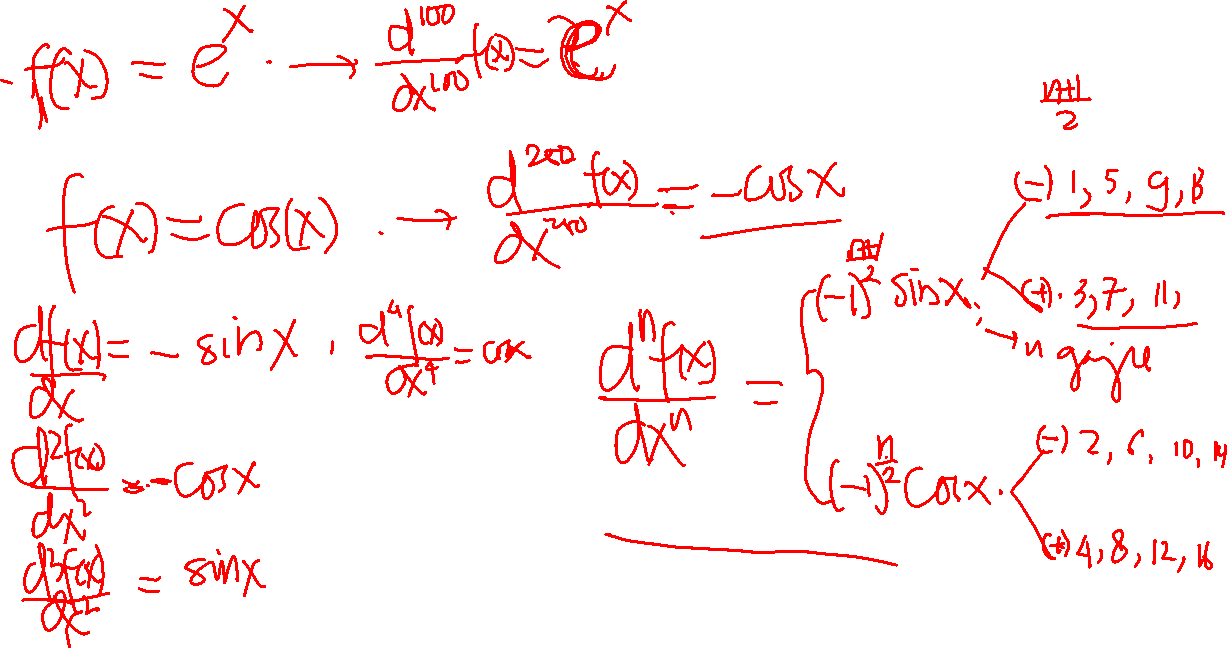 f(x) = e^x . → d^100/dx^100 f(x) = e^x
f(x) = cos(x) . → d^200 f(x)/dx^200 = -cosx
df(x)/dx = - sinx , d^4 f(x)/dx^4 = cosx
d^2 f(x)/dx^2 = - cosx
d^3 f(x)/dx^2 = sinx
n+1/2
d^n f(x)/dx^n = { (-1)^(n+1/2) sinx, → n
(-) 1, 5, 9, 13
(+) . 3, 7, 11,
(-1)^(n/2) cosx .
(-) 2, 6, 10, 14
(+) 4, 8, 12, 16